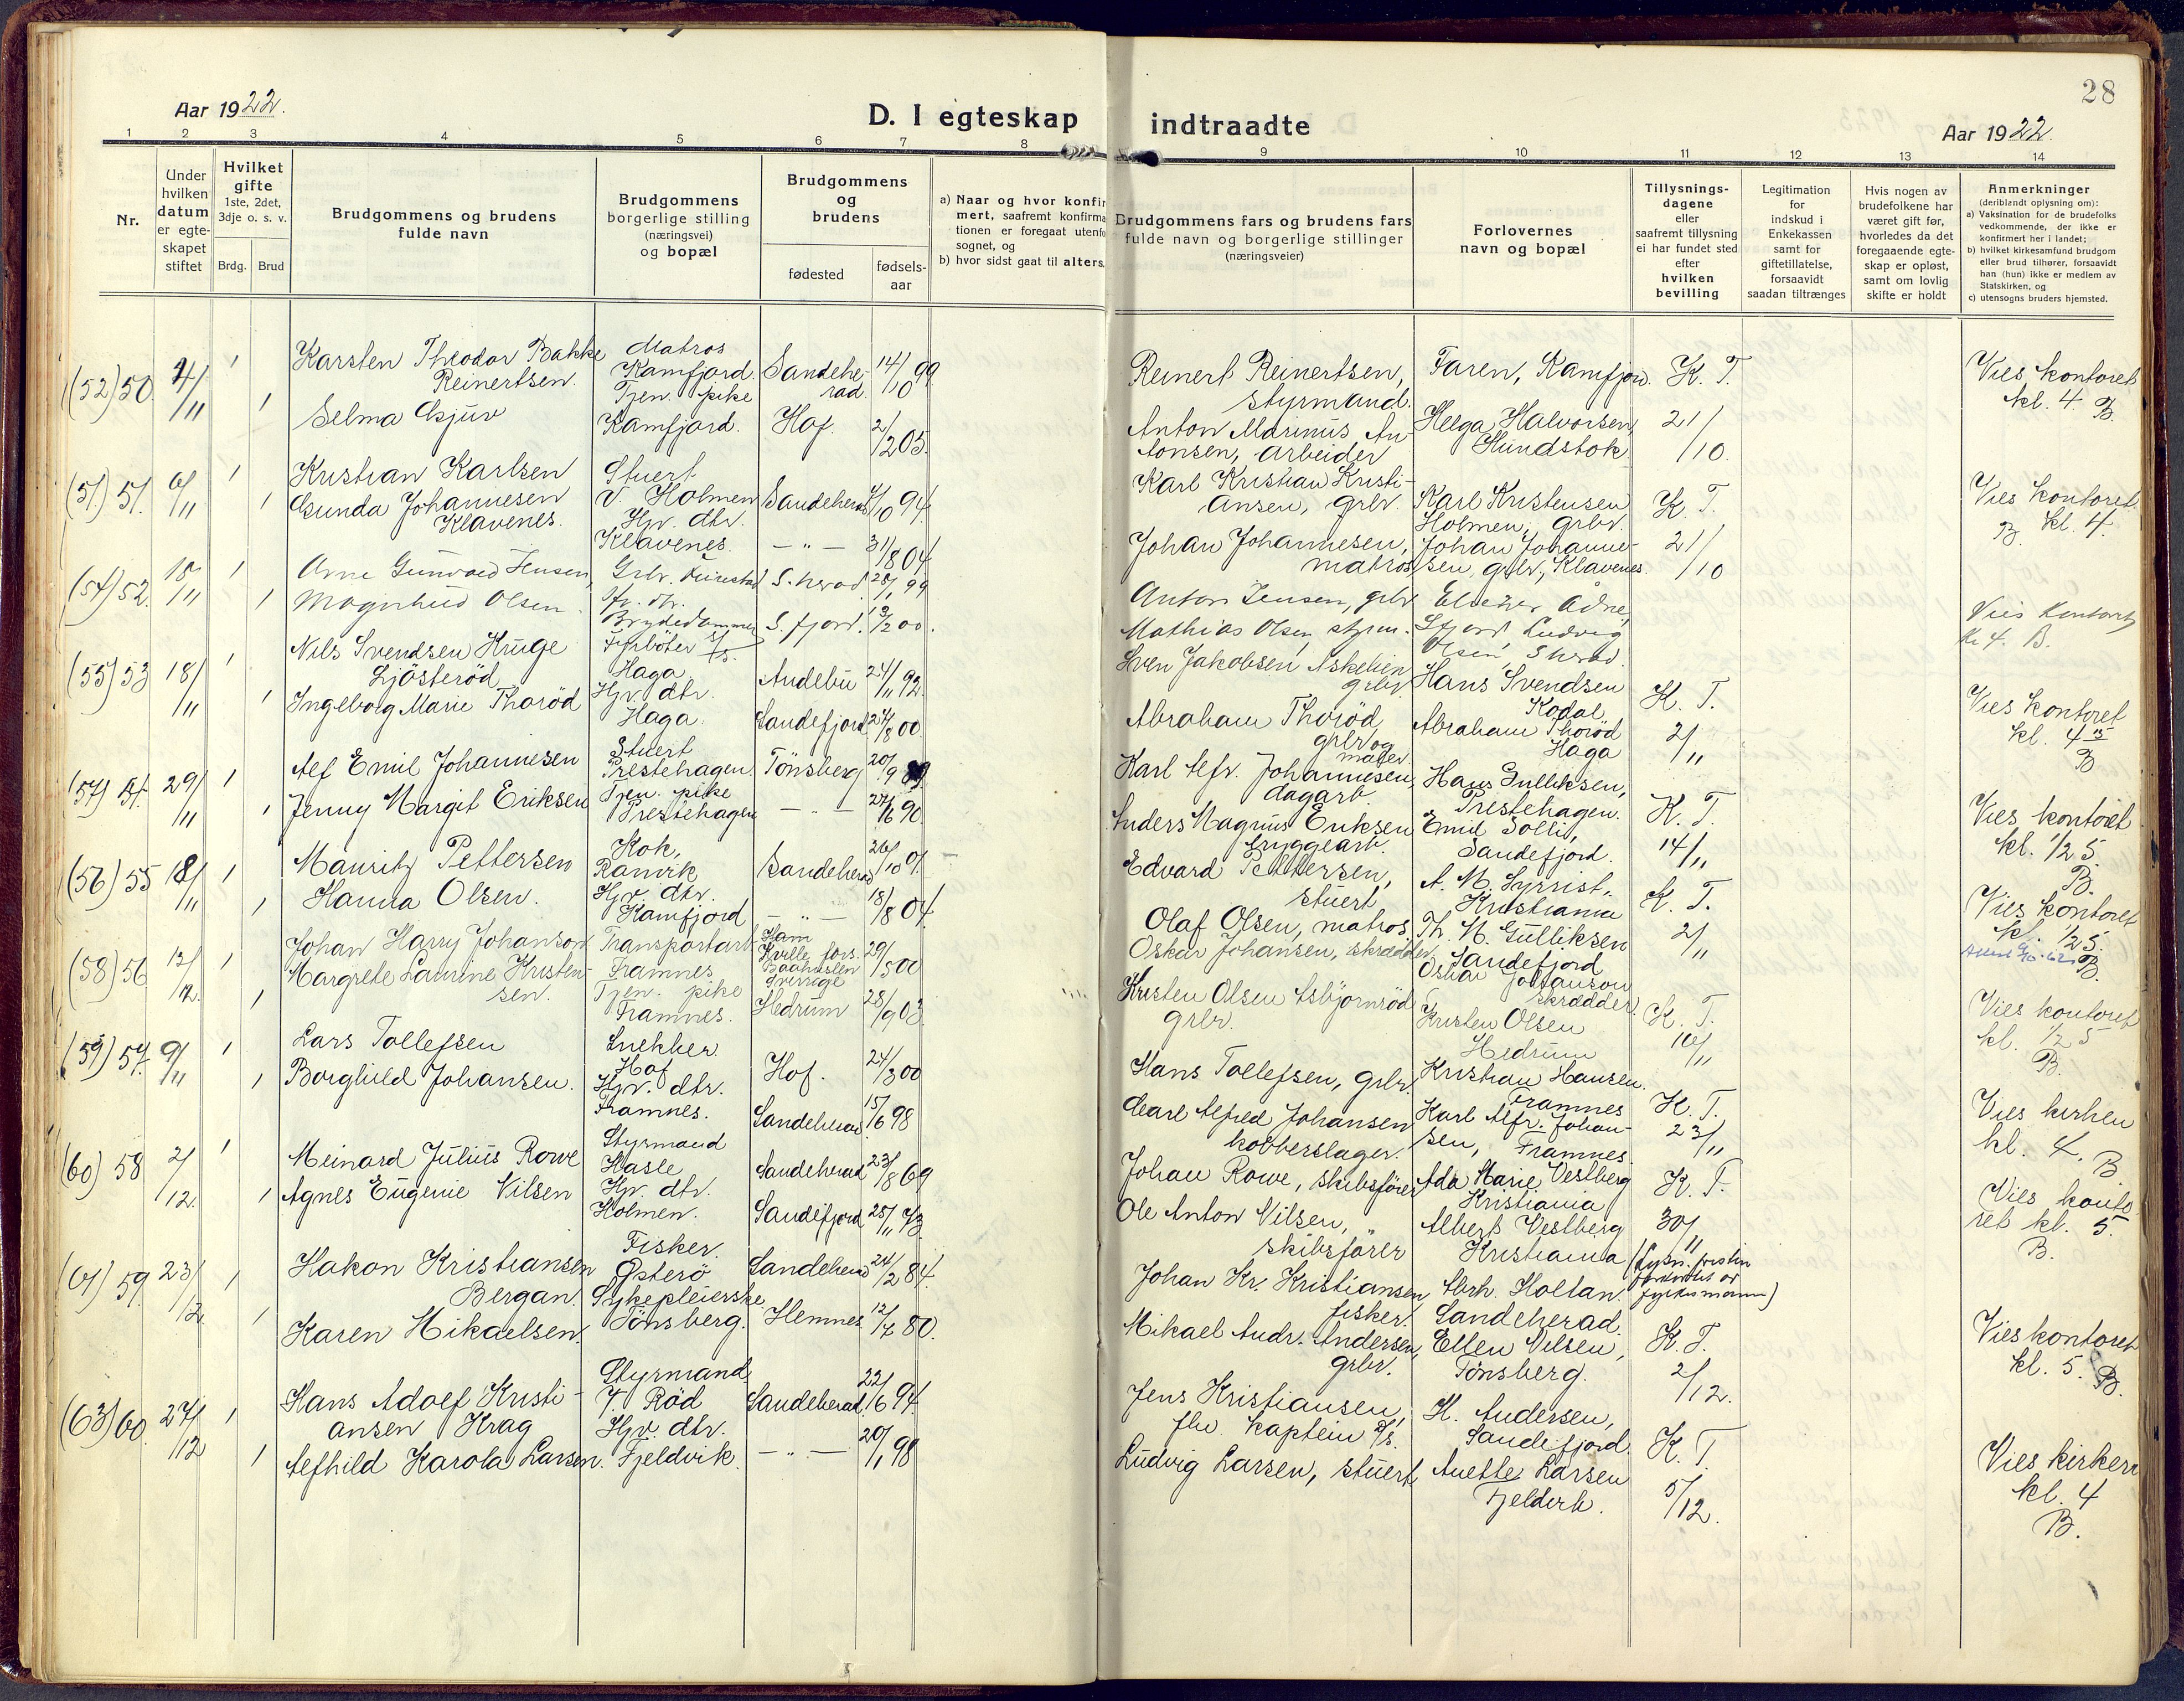 28
Aar 1922.
D. I egteskap indtraadte
Aar 1922.
1 2 3 4 5 6 7 8 9 10 11 12 13 14
Nr.
Under
hvilken
datum
er egte-
skapet
stiftet
Hvilket
gifte
1ste, 2det,
3dje o. s. v.
Brdg. Brud
Brudgommens og brudens
fulde navn
Brudgommens
borgerlige stilling
(næringsvei)
og bopæl
Brudgommens
og
brudens
fødested
fødsels-
aar
a) Naar og hvor konfir
mert, saafremt konfirma
tionen er foregaat utenfo
sognet, og
b) hvor sidst gaat til alters.
Brudgommens fars og brudens fars
fulde navn og borgerlige stillinger
(næringsveier)
Forlovernes
navn og bopæl
Tillysnings-
dagene
eller
saafremt tillysning
ei har fundet sted
efter
hvilken
bevilling
Legitimation
for
indskud i
Enkekassen
samt for
giftetillatelse,
forsaavidt
saadan tiltrænges
Hvis nogen av
brudefolkene har
været gift før,
hvorledes da det
foregaaende egte-
skap er opløst,
samt om lovlig
skifte er holdt
Anmerkninger
(deriblandt oplysning om):
a) Vaksination for de brudefolks
vedkommende, der ikke er
konfirmert her i landet;
b) hvilket kirkesamfund brudgom
eller brud tilhører, forsaavidt
han (hun) ikke er medlem av
Statskirken, og
c) utensogns bruders hjemsted.
(52) 50. 4/11 1 1
Karsten Theodor Bakke
Reinertsen.
Selma Gjuv
Matros
Kamfjord.
Tjen. pike
Kamfjord.
Sandehe-
rad. 14/10 99
Hof. 2/2 05.
Reinert Reinertsen,
styrmand.
Anton Marinus An-
tonsen, arbeider
Faren, Kamfjord.
Helga Halvorsen,
Hundstok
K. T.
21/10.
Vies kontoret
kl. 4. B.
(51) 51. 6/11 1 1
Kristian Karlsen
Gunda Johannesen
Klavenes.
Stuert
V. Holmen
Hjv. dtr.
Klavenes.
Sandeherad /10 94.
— " — 31/8 04.
Karl Kristian Kristi-
ansen, grbr.
Johan Johannesen,
matros
Karl Kristensen
Holmen, grbr.
Johan Johanne-
sen, grbr, Klavenes.
K. T.
21/10
Vies kontoret
B. kl. 4.
(54) 52. 18/11 1 1
Arne Gunvald Jensen,
Magnhild Olsen.
Grbr.
Hjv. dtr.
S. herad 28/1 99
S. fjord. 13/2 00.
Anton Jensen, grbr
Mathias Olsen, styrm.
S.fjord Ludvig
Olsen, S herad.
Vies kontoret
kl 4. B.
(55) 53 18/11 1 1
Nils Svendsen Kruge
Ljösteröd
Ingeborg Marie Thoröd
Fyrböter
Haga
Hjv. dtr.
Haga.
Andebu 24/11 92.
Sandefjord 24/8 00.
Sven Jakobsen Askelien
grbr.
Abraham Thoröd
grbr og
maler.
Hans Svendsen
Kodal
Abraham Thoröd
Haga
K. T.
2/11
Vies kontoret
kl. 4 15
B
(57) 54. 29/11 1 1
Alf Emil Johannesen
Jenny Margit Eriksen
Stuert
Prestehagen.
Tjen. pike
Prestehagen
Tönsberg 20/9 89
— " — 27/6 90.
Karl Alfr. Johannesen,
dagarb.
Anders Magnus Eriksen
bryggearb.
Hans Gulliksen,
Prestehagen.
Emil Solli,
Sandefjord.
K. T.
14/11
Vies kontoret
kl. 1/2 5.
B.
(56) 55 18/11 1 1
Mauritz Pettersen
Hanna Olsen.
Kok,
Ranvik
Hjv. dtr.
Kamfjord
Sandeherad 26/10 01.
— " — 18/8 04.
Edvard Pettersen,
stuert
Olaf Olsen, matros
A. M. Syrrist,
Kristiania
Th. M. Gulliksen
Sandefjord
K. T.
2/11
Vies kontoret
kl. 1/2 5.
B.
(58) 56 12/12. 1 1
Johan Harry Johanson
Margrete Laurine Kristen-
sen.
Transportarb
Framnes
Tjen. pike
Framnes.
Ham
Kville fors.
Baahuslen
Sverrige 29/5 00
Hedrum 28/9 03.
Oskar Johansen, skrædder
Kristen Olsen Asbjörnröd
grbr.
Oskar Johanson
skrædder
Kristen Olsen
Hedrum
K. T.
10/11
Vies kontoret
kl. 1/2 5
B.
(59) 57. 9/11 1 1
Lars Tollefsen
Borghild Johansen.
Snekker
Hof
Hjv. dtr.
Framnes.
Hof. 24/3 00
Sandeherad 15/6 98
Hans Tollefsen, Grbr.
Carl Alfred Johansen
kobberslager.
Kristian Hansen.
Framnes
Karl Alfr. Johan-
sen, Framnes.
K. T.
23/11
Vies kirken
kl. 4. B
(60) 58 2/12. 1 1
Meinard Julius Rowe
Agnes Eugenie Nilsen
Styrmand
Hasle
Hjv. dtr.
Holmen.
Sandeherad 23/8 69
Sandefjord 28/11 73.
Johan Rowe, skibsfører
Ole Anton Nilsen, "
skibsfører
Ada Marie Vestberg
Kristiania
Albert Vestberg
Kristiania
K. T.
30/11
(Lysn. fristen
forkortet av
fylkesmannen)
Vies konto
ret kl. 5.
B.
(61) 59 23/12 1 1
Hakon Kristiansen
Bergan.
Karen Mikaelsen.
Fisker.
Österö
Sykepleierske
Tönsberg.
Sandeherad 24/2 84.
Hemnes. 12/7 80.
Johan Kr. Kristiansen
fisker.
Mikael Andr. Andersen,
grbr.
Abrh. Holtan.
Sandeherad.
Ellen Nilsen,
Tönsberg.
K. T.
2/12.
Vies kontoret
kl. 5. B.
(63) 60. 27/12 1 1
Hans Adolf Kristi-
ansen Krag
Alfhild Karola Larsen.
Styrmand
Y. Röd
Hjv. dtr.
Fjeldvik.
Sandeherad. 22/6 94
— " — 20/1 98
Jens Kristiansen,
fhv. kaptein D/S.
Ludvig Larsen, stuert
H. Andersen,
Sandefjord.
Anette Larsen
Fjeldvik.
K. T.
5/12.
Vies kirken
kl. 4
B.